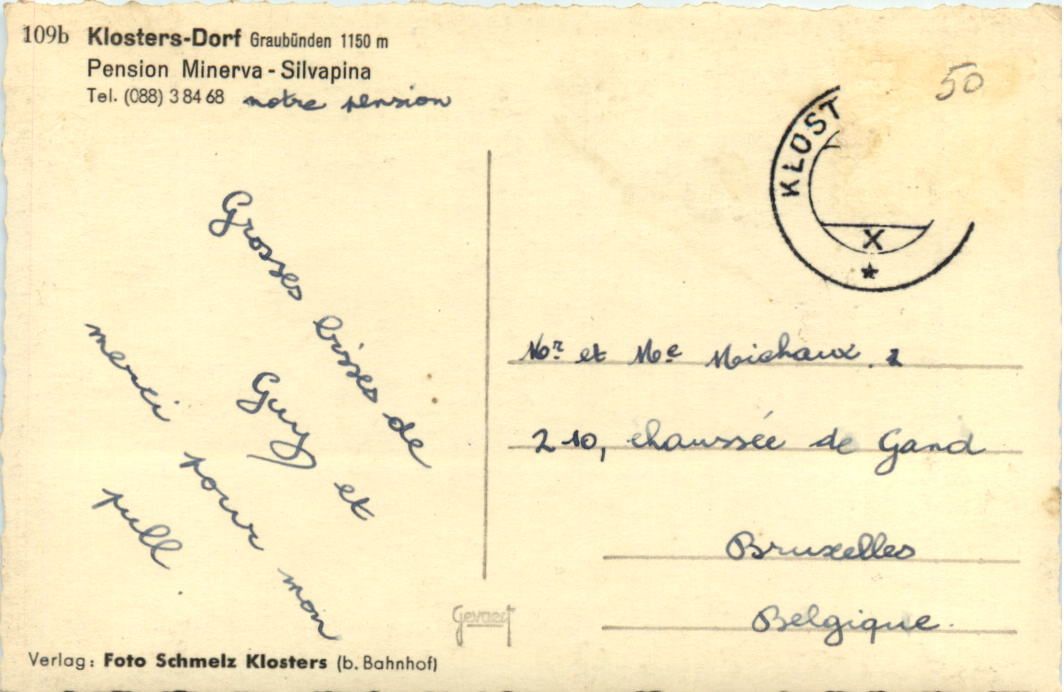 109b Klosters-Dorf Graubünden 1150 m
Pension Minerva - Silvapina
Tel. (088) 3 84 68 notre pension
50
KLOST
X
Grosses bisses de
Guy et
merci pour mon
pull.
Mr et Me Michaux.
210, chaussée de Gand
Bruxelles
Belgique.
Gevaert
Verlag: Foto Schmelz Klosters (b. Bahnhof)